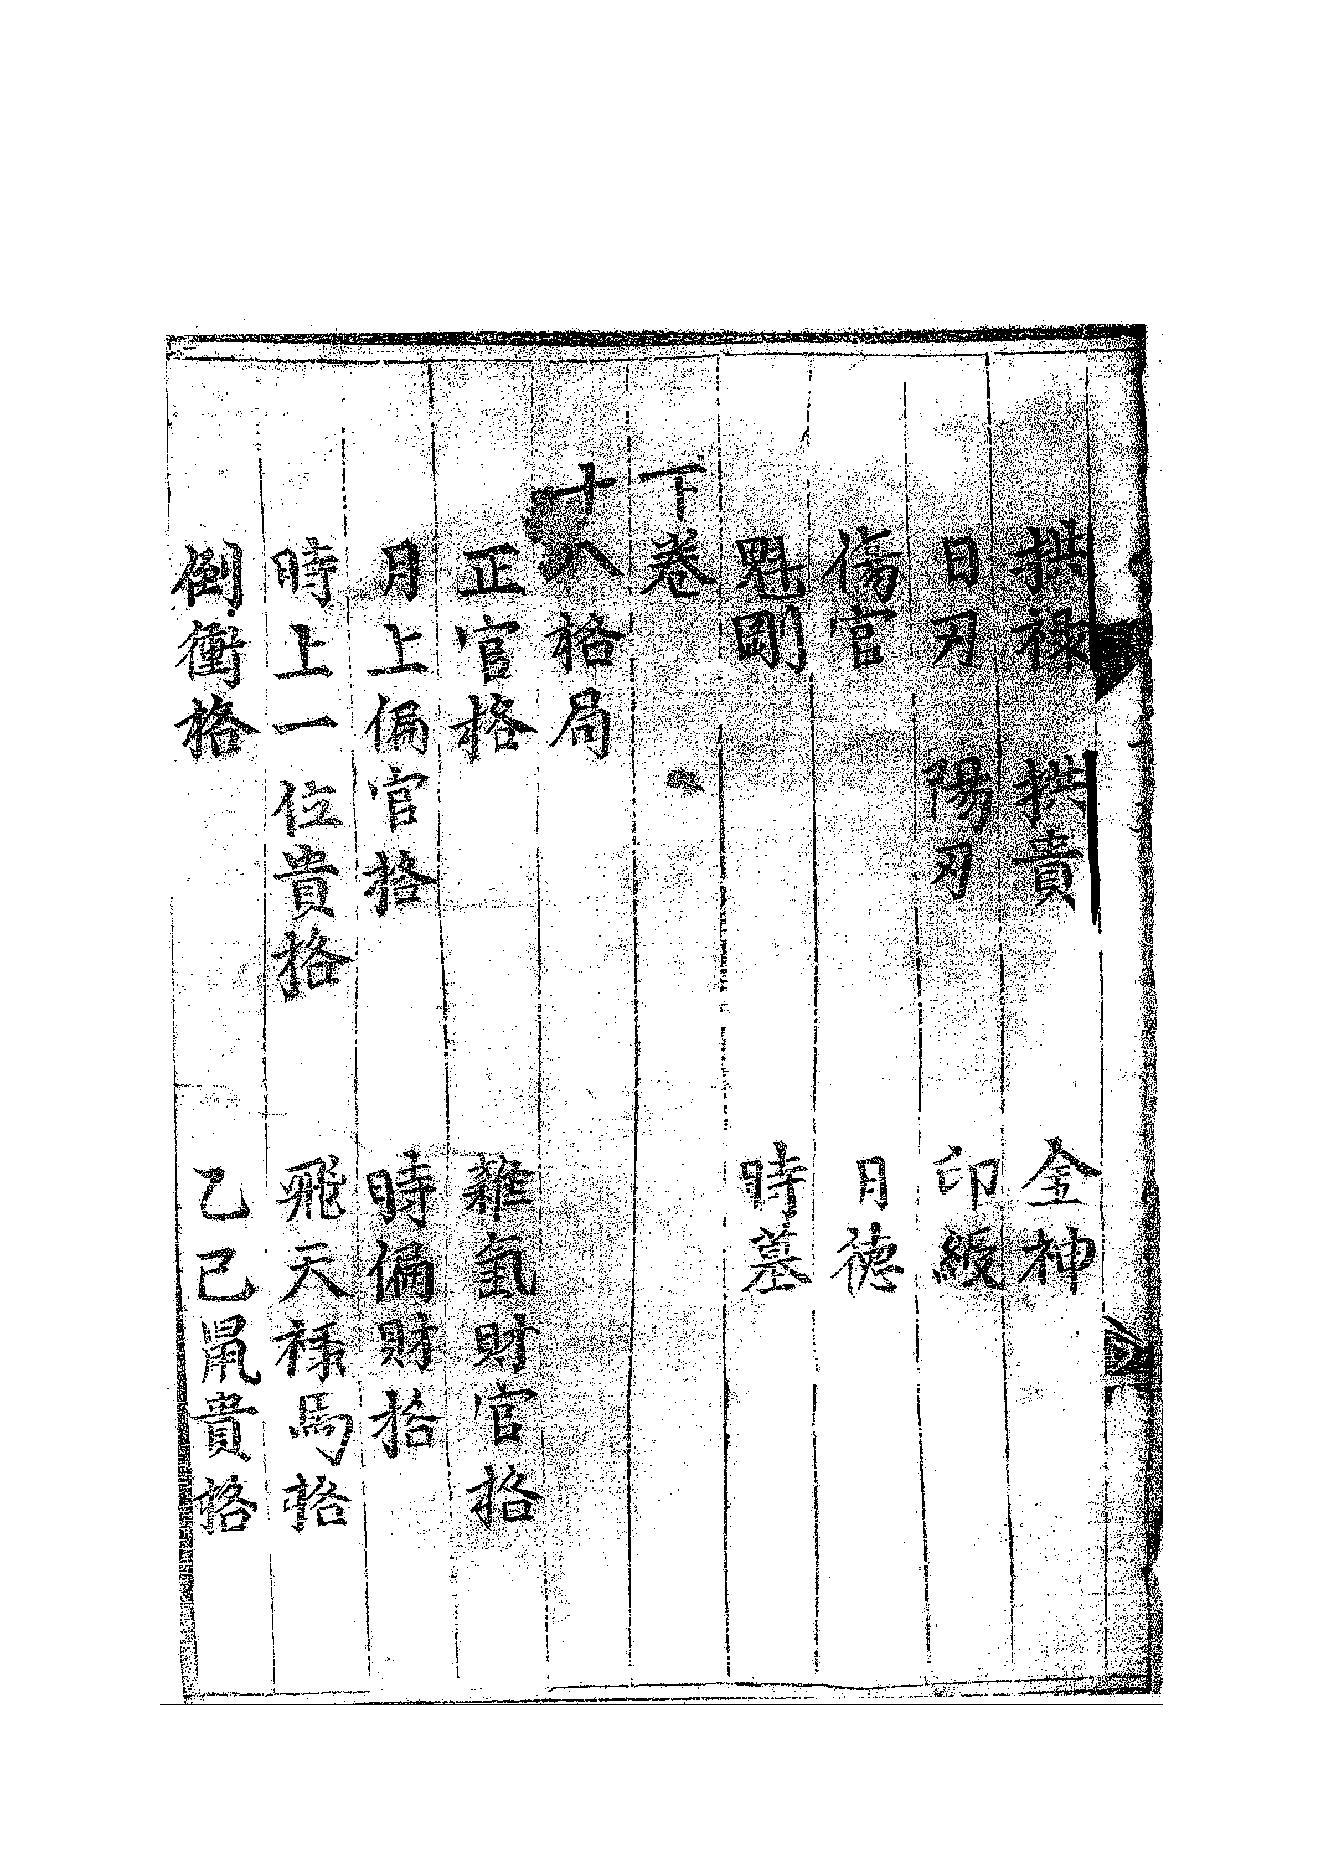 拱祿　拱貴　金神
日刃　陽刃　印綬
傷官　日德
魁罡　時墓
下卷
十八格局
正官格　雜氣財官格
月上偏官格　時偏財格
時上一位貴格　飛天祿馬格
倒衝格　乙己鼠貴格